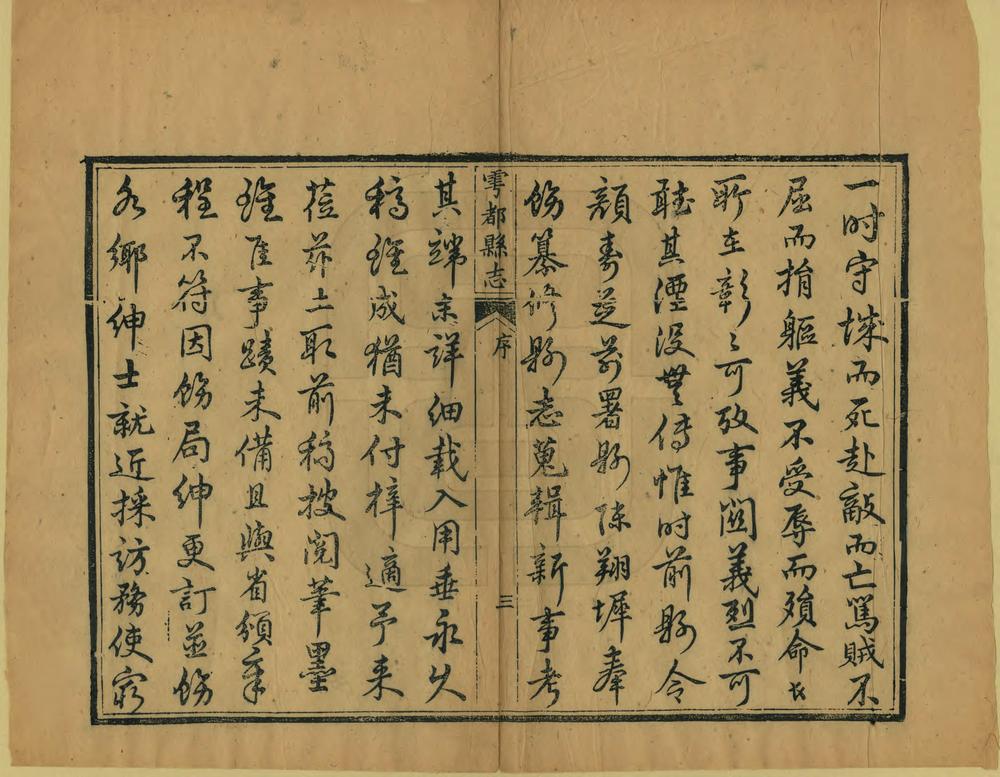 一时守城而死赴敵而亡罵賊不
屈而捐軀義不受辱而殞命者
所在彰〻可攷事闗義烈不可
聴其湮没無傳惟时前縣令
顔壽芝前署縣陳翔墀奉
飭纂修縣志蒐輯新事考
雩都縣志 序 三
其端末詳細載入用垂永久
稿雖成猶未付梓適予来
莅茲土取前稿披閲筆墨
雖佳事蹟未備且與省頒章
程不符因飭局紳更訂並飭
各鄉紳士就近採訪務使窮